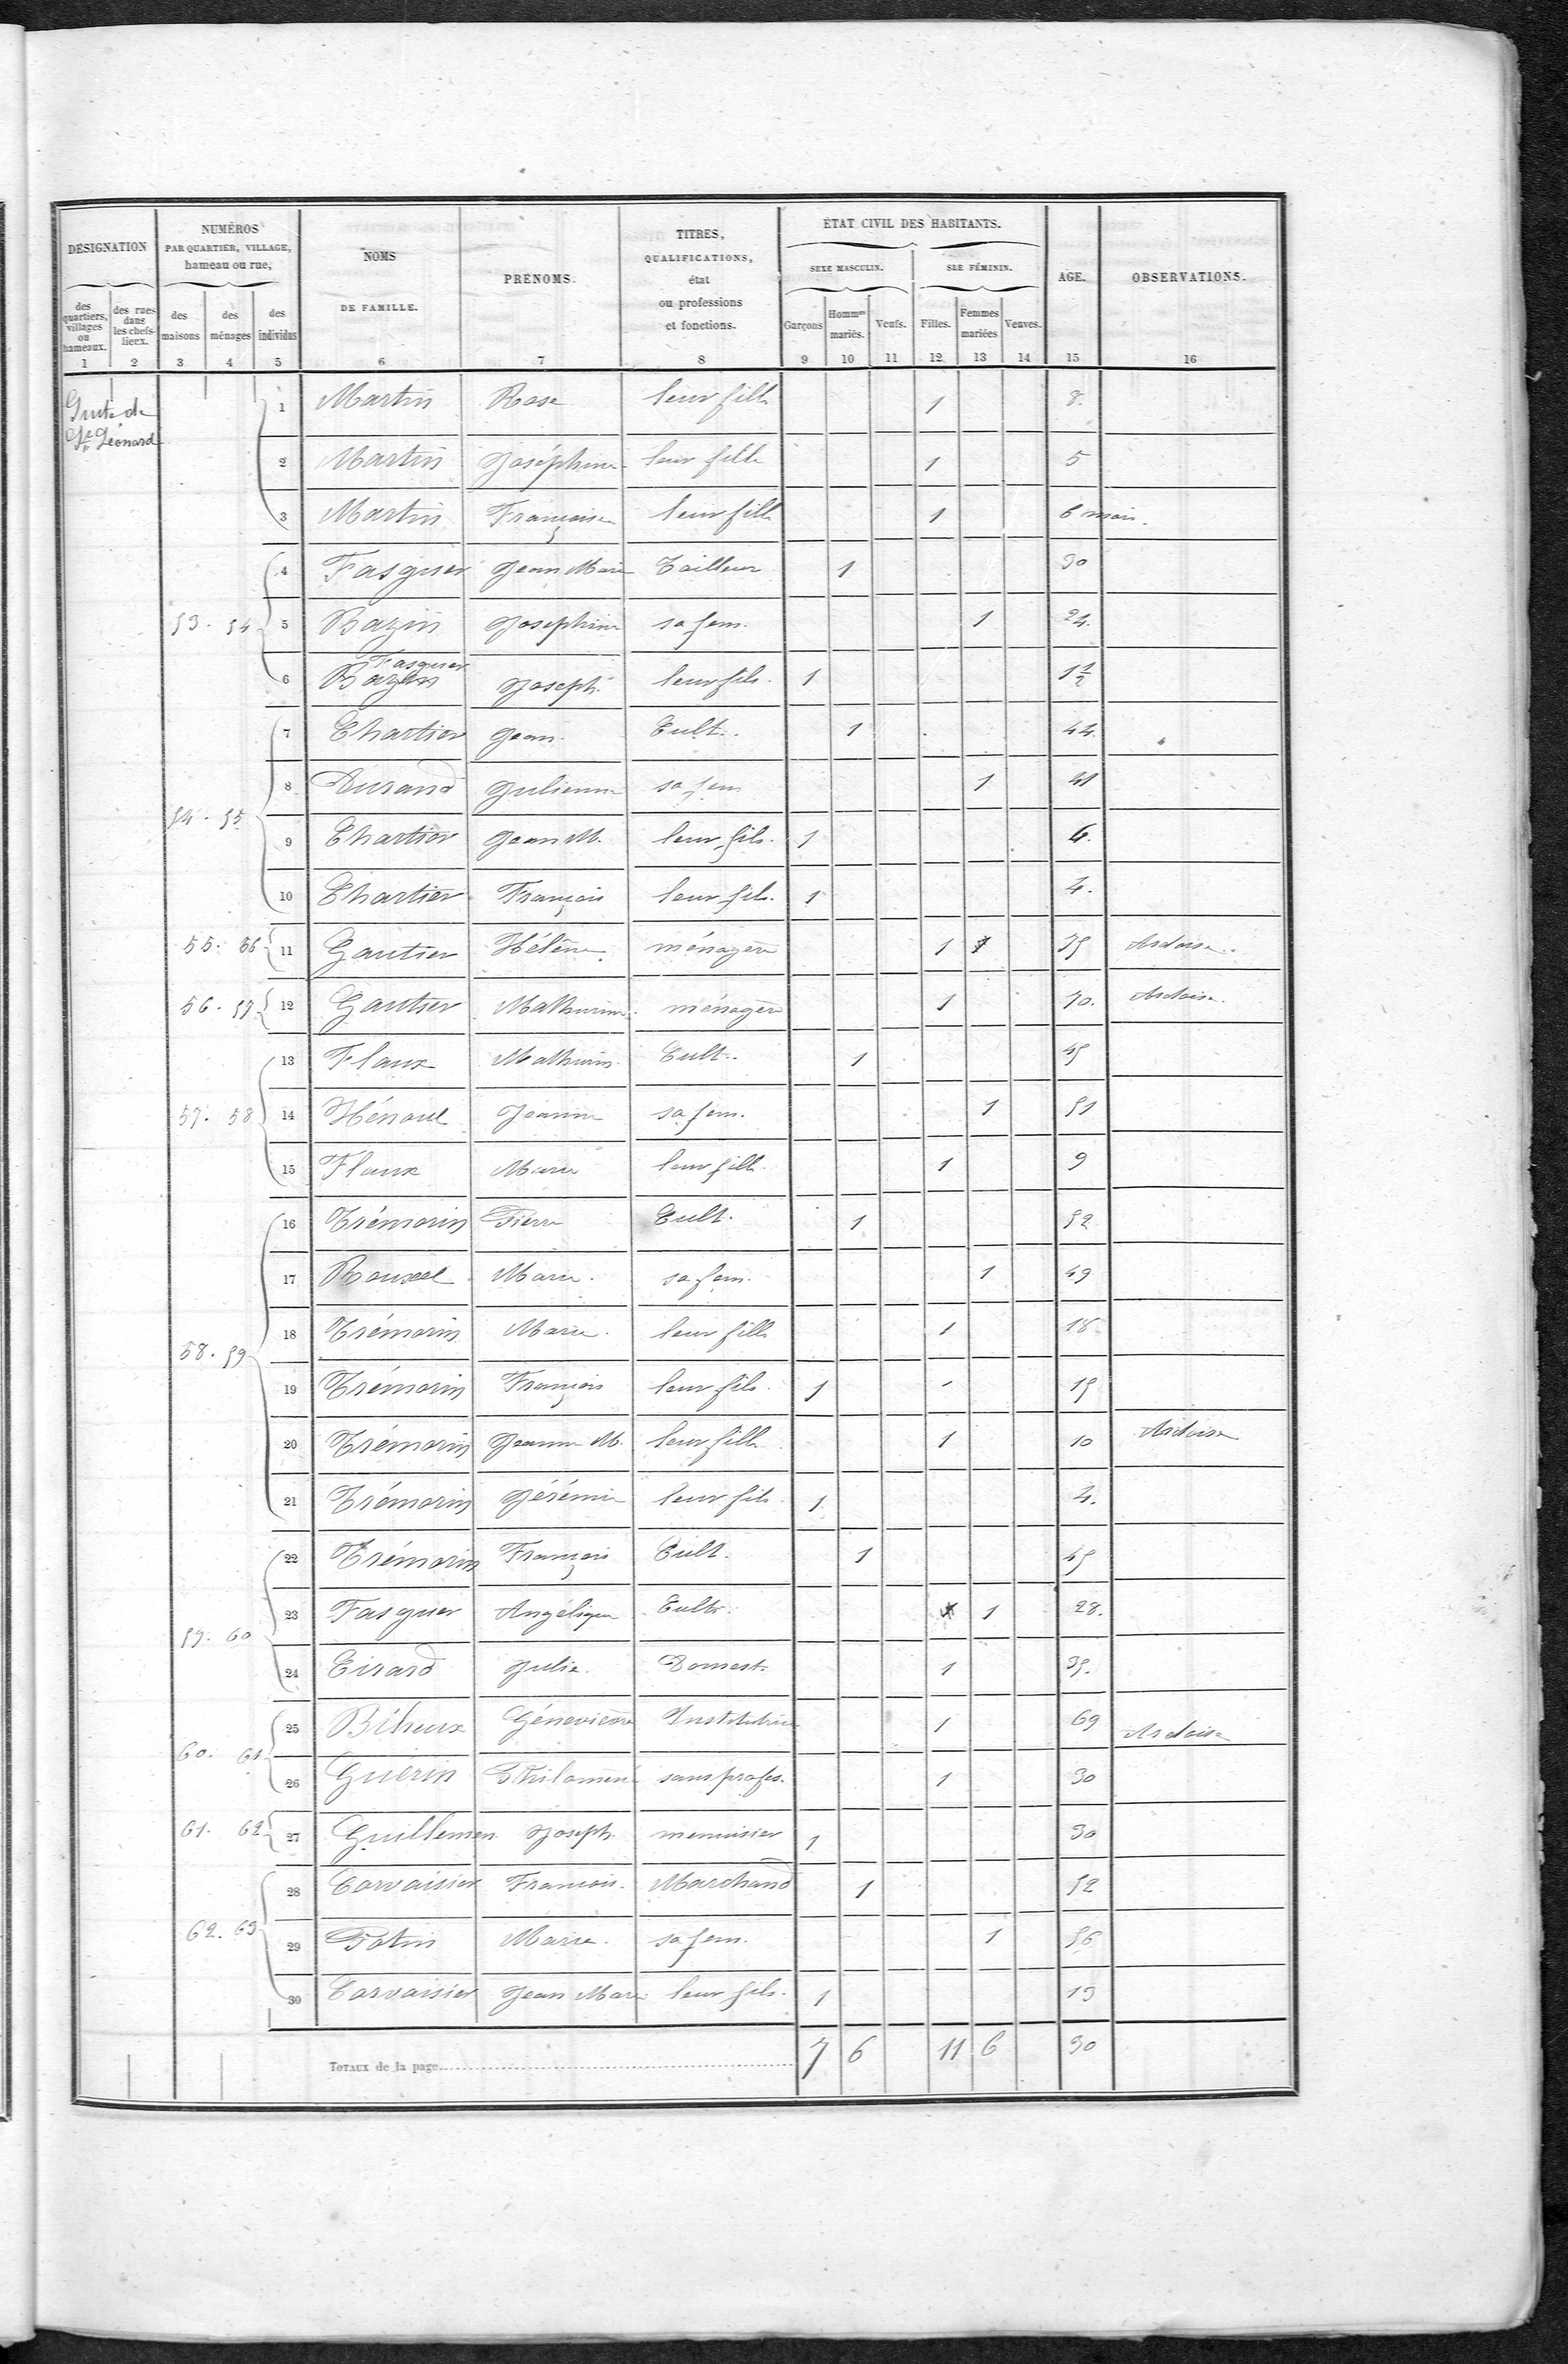 DÉSIGNATION
NUMÉROS
PAR QUARTIER, VILLAGE,
hameau ou rue,
NOMS
DE FAMILLE.
PRÉNOMS.
TITRES,
QUALIFICATIONS,
état
ou professions
et fonctions.
ÉTAT CIVIL DES HABITANTS.
SEXE MASCULIN.
SEE FÉMININ.
AGE.
OBSERVATIONS.
des quartiers, villages ou hameaux.
des rues dans les chefs-lieux.
des maisons
des ménages
des individus
Garçons
Hommes mariés.
Veufs.
Filles.
Femmes mariées
Veuves.
1 2 3 4 5 6 7 8 9 10 11 12 13 14 15 16
de
St Léonard
1 Martin Rose leur fille 1 8.
2 Martin Joséphine leur fille 1 5
3 Martin Françoise leur fille 1 6 mois.
4 Fasguer Jean Marie Tailleur 1 30
53. 54 5 Bazin Josephine sa fem. 1 24.
Fasguer
6 Bazin Joseph leur fils. 1 1 1/2
7 Chartier Jean. Cult. 1 44.
8 Durand Julienne sa fem 1 41
54. 55
9 Chartier Jean M. leur fils. 1 6.
10 Chartier François leur fils. 1 4.
55. 56 11 Gautier Hélène ménagère 1 75 Ardoise.
56. 57 12 Gautier Mathurine ménagère 1 70. Ardoise.
13 Flaux Mathurin Cult. 1 45
57. 58 14 Hénoul Jeanne sa fem. 1 51
15 Flaux Marie leur fille 1 9
16 Trémorin Pierre Cult. 1 52
17 Rouxel Marie. sa fem. 1 49
18 Trémorin Marie. leur fille 1 18
58. 59
19 Trémorin François leur fils. 1 15
20 Trémorin Jeanne M. leur fille 1 10 Ardoise
21 Trémorin Jérémie leur fils 1 4.
22 Trémorin François Cult. 1 45
23 Fasguer Angélique Cultr. 1 28.
59. 60
24 Eirard Julie. Domest. 1 35.
25 Biheux Génevieve Institutrice 1 69 Ardoise
60. 61
26 Guérin Philomène sans profes. 1 30
61. 62 27 Guillemen Joseph menuisier 1 30
28 Corvaisier François. Marchand 1 52
62. 63
29 Potin Marie. sa fem. 1 56
30 Corvaisier Jean Marie leur fils. 1 19
TOTAUX de la page 7 6 11 6 30